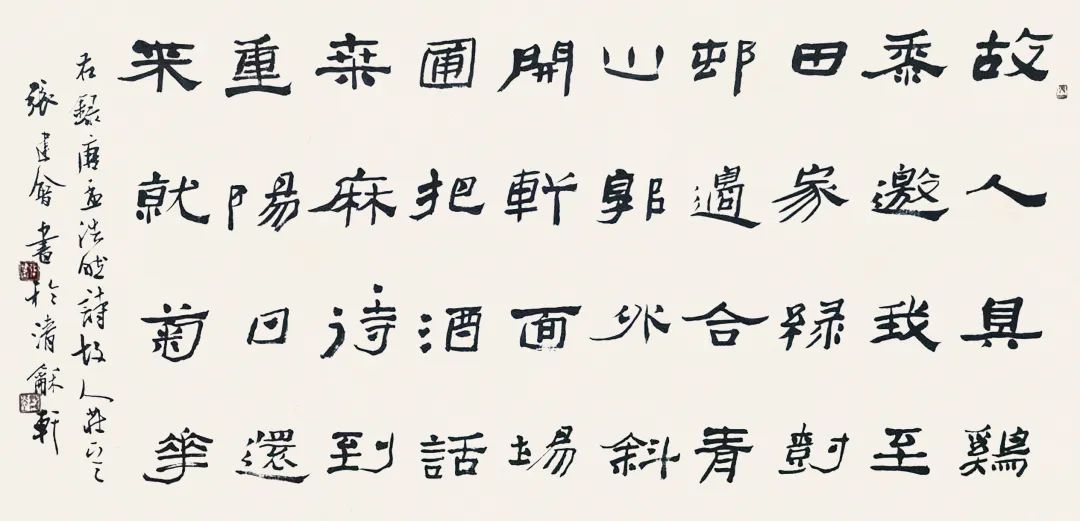 故人具鷄
黍邀我至
田家綠樹
邨邊合青
山郭外斜
開軒面場
圃把酒話
桒麻待到
重陽日還
来就菊華
右録唐孟浩然詩故人莊
張建會書於清龢軒